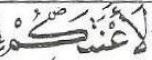 لَأَعْنَتَكُمْ